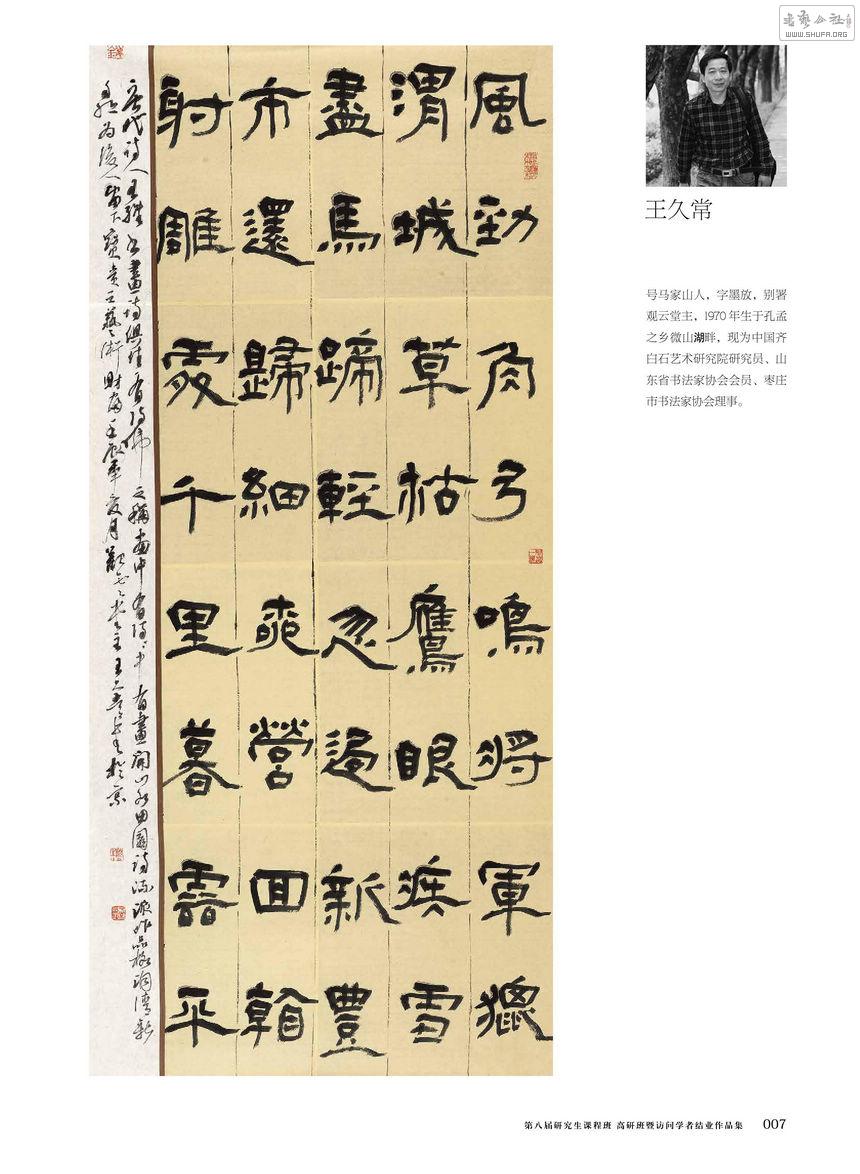 書藝公社
WWW.SHUFA.ORG
風勁角弓鳴將軍獵
渭城草枯鷹眼疾雪
盡馬蹄輕忽過新豐
市還歸細柳營回看
射雕處千里暮雲平
唐代詩人王維書畫詩俱佳有詩佛之稱畫中有詩詩中有畫開山水田園詩派源作品格調清新
為後人留下寶貴之藝術財富壬辰年夏月觀雲堂主王久常書於京
王久常
号马家山人，字墨放，别署
观云堂主，1970 年生于孔孟
之乡微山湖畔，现为中国齐
白石艺术研究院研究员、山
东省书法家协会会员、枣庄
市书法家协会理事。
第八届研究生课程班 高研班暨访问学者结业作品集 007